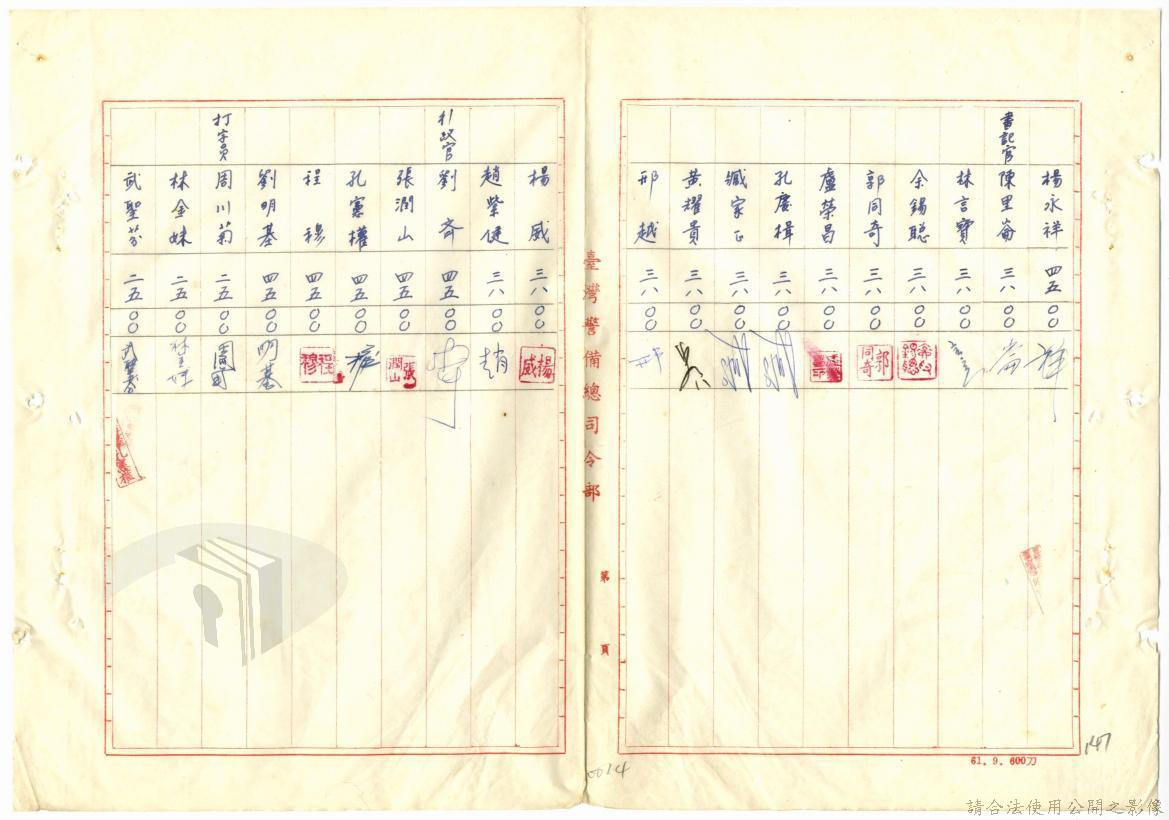 楊永祥 四五〇〇 祥
書記官 陳里崙 三六〇〇 崙
林言寶 三八〇〇
余錫聰 三八〇〇
郭同奇 三八〇〇 郭同奇
盧榮昌 三八〇〇
孔慶楫 三八〇〇
臧家正 三八〇〇
黃耀貴 三八〇〇
邢越 三八〇〇 邢
臺灣警備總司令部
第 頁
楊威 三八〇〇 楊威
趙紫健 三八〇〇 趙
行政官 劉斎 四五〇〇
張潤山 四五〇〇 張潤山
孔憲權 四五〇〇 權
程穆 四五〇〇 程穆
劉明基 四五〇〇 明基
打字員 周川菊 二五〇〇
林金妹 二五〇〇 林金妹
武聖芬 二五〇〇 武聖芬
61. 9. 600刀
147
0014
請合法使用公開之影像